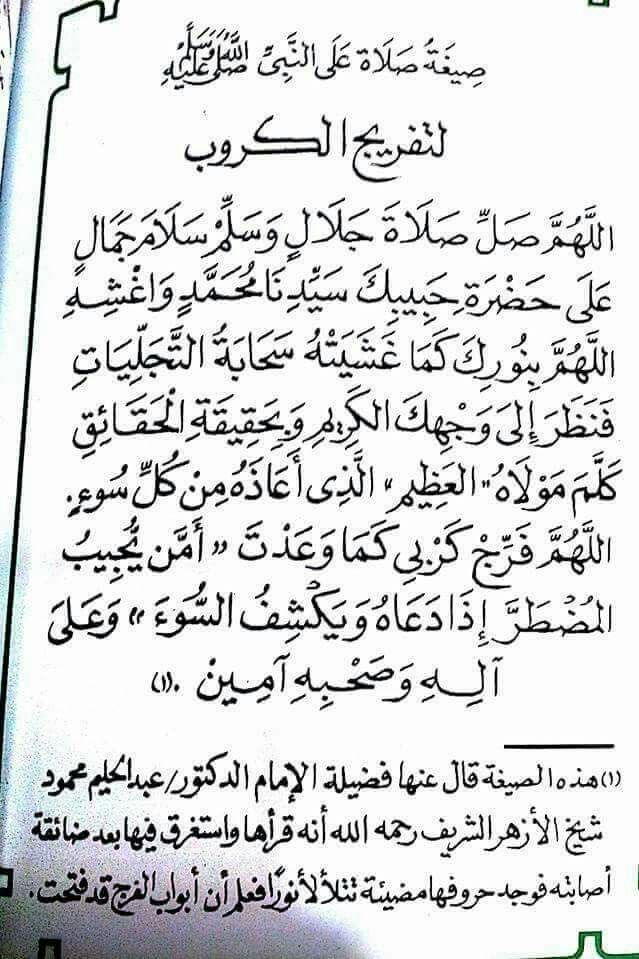 صِيغَةُ صَلَاةٍ عَلَى النَّبِىِّ ﷺ
لتفريج الكروب
اللَّهُمَّ صَلِّ صَلَاةَ جَلَالٍ وَسَلِّمْ سَلَامَ جَمَالٍ
عَلَى حَضْرَةِ حَبِيبِكَ سَيِّدِنَا مُحَمَّدٍ وَاغْشِهِ
اللَّهُمَّ بِنُورِكَ كَمَا غَشَيَتْهُ سَحَابَةُ التَّجَلِّيَاتِ
فَنَظَرَ إِلَى وَجْهِكَ الكَرِيمِ وَبِحَقِيقَةِ الْحَقَائِقِ
كَلَّمَ مَوْلَاهُ "العَظِيمِ" الَّذِى أَعَاذَهُ مِنْ كُلِّ سُوءٍ.
اللَّهُمَّ فَرِّجْ كَرْبِي كَمَا وَعَدْتَ «أَمَّن يُجِيبُ
المُضْطَرَّ إِذَا دَعَاهُ وَيَكْشِفُ السُّوءَ» وَعَلَى
آلِهِ وَصَحْبِهِ آمِينْ .(١)
(١) هذه الصيغة قال عنها فضيلة الإمام الدكتور/عبدالحليم محمود
شيخ الأزهر الشريف رحمه الله أنه قرأها واستغرق فيها بعد ضائقة
أصابته فوجد حروفها مضيئة تتلألأ نورًا فعلم أن أبواب الفرج قد فتحت.